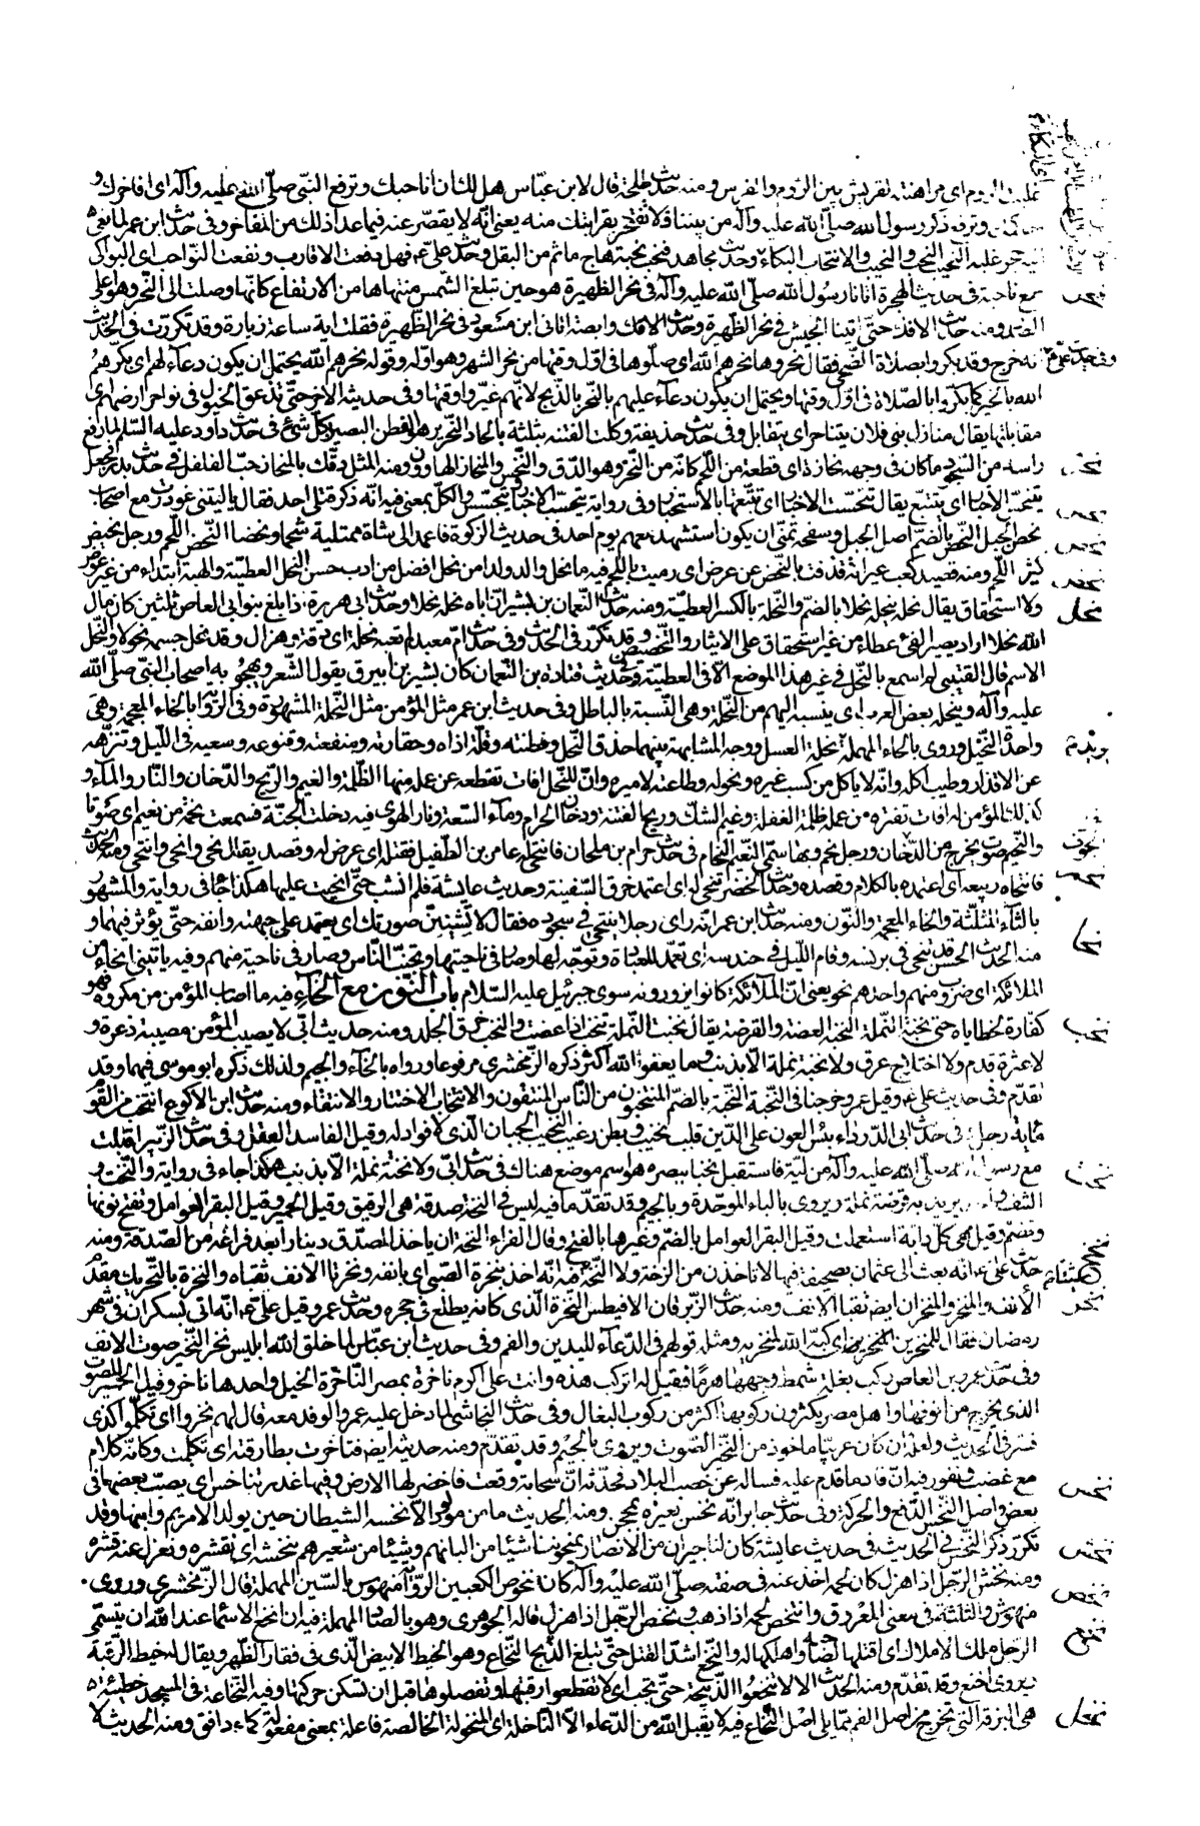 غلبت الروم اى مراهنته لقريش بين الروم والفرس ومنه حديث طلحة قال لابن عباس هل لك ان اناحبك وترفع النبى صلى الله عليه وآله اى افاخرك و
وترفع ذكر رسول الله صلى الله عليه وآله من بيننا فلا تفتخر بقرابتك منه يعنى انه لا يقصر عنه فيما عدا ذلك من المفاخر وفى حديث ابن عمر لما نعى
عليه النحيب النحب والنحيب والانتحاب البكاء وحديث مجاهد فنحب نحبة هاج ماثم من البقل وحديث على ع فهل دفعت الاقارب ونفعت النواحب اى البواكى
جمع ناحبة فى حديث الهجرة اتانا رسول الله صلى الله عليه وآله فى نحر الظهيرة هو حين تبلغ الشمس منتهاها من الارتفاع كانها وصلت الى النحر وهو اعلى
الصدر ومنه حديث الافك حتى اتينا الجيش فى نحر الظهيرة وحديث وابصة اتانى ابن مسعود فى نحر الظهيرة فقلت اية ساعة زيارة وقد تكررت فى الحديث
وفى حديث على ع انه خرج وقد بكروا بصلاة الضحى فقال نحروها نحرهم الله اى صلوها فى اول وقتها من نحر الشهر وهو اوله وقوله نحرهم الله يحتمل ان يكون دعاء لهم اى بكرهم
الله بالخير كما بكروا بالصلاة فى اول وقتها ويحتمل ان يكون دعاء عليهم بالنحر والذبح لانهم غيروا وقتها وفى حديثه الاخر حتى تدعق الخيول فى نواحر ارضهم اى
مقابلاتها يقال منازل بنى فلان يتناحر اى يتقابل وفى حديث حذيفة وكلت الفتنة بثلثة بالحاد النحرير هو الفطن البصير بكل شئ فى حديث داود عليه السلم لما رفع
راسه من السجود ما كان فى وجهه نحازة اى قطعة من اللحم كانه من النحز وهو الدق والنخس والمنحاز الهاون ومنه المثل دقك بالمنحاز حب الفلفل فى حديث بدر فجعل
يتنحس الاخبار اى يتتبع يقال تنحست الاخبار اى تتبعتها بالاستخبار وفى رواية يتحسب الاخبار ويتحسس والكل بمعنى فيه انه ذكر قتلى احد فقال يا ليتنى غودرت مع اصحاب
نحص الجبل النحص بالضم اصل الجبل وسفحه تمنى ان يكون استشهد معهم يوم احد فى حديث الزكوة فاعمد الى شاة ممتلية شحما ونحضا النحض اللحم ورجل نحيض
كثير اللحم ومنه قصيد كعب عيرانة قذفت بالنحض عن عرض اى رميت باللحم فيه ما نحل والد ولدا من نحل افضل من ادب حسن النحل العطية والهبة ابتداء من غير عوض
ولا استحقاق يقال نحله ينحله نحلا بالضم والنحلة بالكسر العطية ومنه حديث النعمان بن بشير ان اباه نحله نحلا وحديث ابى هريرة اذا بلغ بنو ابى العاص ثلثين كان مال
الله نحلا اراد يصير الفئ عطاء من غير استحقاق على الايثار والتخصيص وقد تكرر فى الحديث وفى حديث ام معبد لم تعبه نحلة اى دقة وهزال وقد نحل جسمه نحولا والنحل
الاسم قال القتيبى لم اسمع بالنحل فى غير هذا الموضع الا فى العطية وفى حديث قتادة بن النعمان كان بشير بن ابيرق يقول الشعر ويهجو به اصحاب النبى صلى الله
عليه وآله وينحله بعض العرب اى ينسبه اليهم من النحلة وهى النسبة بالباطل وفى حديث ابن عمر مثل المؤمن مثل النحلة المشهورة وفى الرواية بالخاء المعجمة وهى
واحدة النخيل وروى بالحاء المهملة نحلة العسل ووجه المشابهة بينهما حذق النحل وفطنته وقلة اذاه وحقارته ومنفعته وقنوعه وسعيه فى الليل وتنزهه
عن الاقذار وطيب اكله وانه لا ياكل من كسب غيره ونحوله وطاعته لاميره وان للنحل افات تقطعه عن عمله منها الظلمة والغيم والريح والدخان والنار والماء و
كذلك المؤمن له افات تفتره من عمله ظلمة الغفلة وغيم الشك وريح الفتنة ودخان الحرام وماء السعة ونار الهوى فيه دخلت الجنة فسمعت نحمة من نعيم اى صوتا
والنحيم صوت يخرج من الجوف ورجل نحم وبها سمى النعيم النحام فى حديث حرام بن ملحان فانتحى له عامر بن الطفيل فقتله اى عرض له وقصد يقال نحى وانحى وانتحى ومنه الحديث
فانتحاه ربيعة اى اعتمده بالكلام وقصده وحديث الخضر تنحى له اى اعتمد خرق السفينة وحديث عايشة فلم انشب حتى انحيت عليها هكذا جاء فى رواية والمشهور
بالثاء المثلثة والخاء المعجمة والنون ومنه حديث ابن عمر انه راى رجلا ينتحى فى سجوده فقال لا تشينن صورتك اى يعتمد على جبهته وانفه حتى يؤثر فيهما و
منه الحديث الحسن قد تنحى فى برنسه وقام الليل فى حندسه اى تعمد للعبادة وتوجه لها وصار فى ناحيتها وتجنب الناس وصار فى ناحية منهم وفيه ياتينى انحاء من
الملائكة اى ضروب منهم واحدهم نحو يعنى ان الملائكة كانوا يزورونه سوى جبرئيل عليه السلام باب النون مع الخاء فيه ما اصاب المؤمن من مكروه فهو
كفارة لخطاياه حتى نخبة النملة النخبة العضة والقرصة يقال نخبت النملة تنخب اذا عضت والنخب خرق الجلد ومنه حديث ابى لا يصيب المؤمن مصيبة ذعرة و
لا عثرة قدم ولا اختلاج عرق ولا نخبة نملة الا بذنب وما يعفو الله اكثر ذكره الزمخشرى مرفوعا ورواه بالخاء والجيم ولذلك ذكره ابو موسى فيهما وقد
تقدم وفى حديث على ع وقيل عمر وخرجنا فى النخبة النخبة بالضم المنتخبون من الناس المنتقون والانتخاب الاختيار والانتقاء ومنه حديث ابن الاكوع انتخب من القوم
مائة رجل وفى حديث ابى الدرداء بئس العون على الدين قلب نخيب وبطن رغيب النخيب الجبان الذى لا فؤاد له وقيل الفاسد العقل وفى حديث الزبير اقبلت
مع رسول الله صلى الله عليه وآله من لية فاستقبل نخبا ببصره هو اسم موضع هناك فى حديث ابى ولا نخته نملة الا بذنب هكذا جاء فى رواية والنخت و
النتف واحد يريد به قرصة نملة ويروى بالباء الموحدة وبالجيم وقد تقدما فيه ليس فى النخة صدقة هى الرقيق وقيل الحمير وقيل البقر العوامل وتفتح نونها
وتضم وقيل هى كل دابة استعملت وقيل البقر العوامل بالضم وغيرها بالفتح وقال الفراء النخة ان ياخذ المصدق دينارا بعد فراغه من الصدقة ومنه
حديث على ع انه بعث الى عثمان بصحيفة فيها لا تاخذن من الزخة ولا النخة شيئا فيه انه اخذ بنخرة الصبى اى بانفه ونخرتا الانف ثقباه والنخرة بالتحريك مقدم
الانف والمنخر والمنخران ايضا ثقبا الانف ومنه حديث الزبرقان الافيطس النخرة الذى كانه يطلع فى حجره وحديث عمر وقيل على ع انه اتى بسكران فى شهر
رمضان فقال للمنخرين للمنخرين اى كبه الله لمنخريه ومثله قولهم فى الدعاء لليدين والفم وفى حديث ابن عباس لما خلق الله ابليس نخر النخير صوت الانف
وفى حديث عمرو بن العاص ركب بغلة شمط وجهها هرما فقيل له اتركب هذه وانت على اكرم ناخرة بمصر الناخرة الخيل واحدها ناخر وقيل الحمير للصوت
الذى يخرج من انوفها واهل مصر يكثرون ركوبها اكثر من ركوب البغال وفى حديث النجاشى لما دخل عليه عمرو والوفد معه قال لهم نخروا اى تكلموا كذى
فسر فى الحديث ولعله ان كان عربيا ماخوذ من النخير الصوت ويروى بالجيم وقد تقدم ومنه حديثه ايضا فتناخرت بطارقته اى تكلمت وكانه كلام
مع غضب ونفور فيه ان قادما قدم عليه فساله عن خصب البلاد فحدثه ان سحابة وقعت فاخضر لها الارض وفيها غدر تناخس اى يصب بعضها فى
بعض واصل النخس الدفع والحركة وفى حديث جابر انه نخس بعيره بمحجن ومنه الحديث ما من مولود الا نخسه الشيطان حين يولد الا مريم وابنها وقد
تكرر ذكر النخس فى الحديث فى حديث عايشة كان لنا جيران من الانصار يمنحوننا شيئا من البانهم وشيئا من شعير هم ننخشه اى نقشره ونعزل عنه قشره
ومنه نخش الرجل اذا هزل كان لحمه اخذ عنه فى صفته صلى الله عليه وآله كان منخوص الكعبين الرواية منهوس بالسين المهملة قال الزمخشرى وروى
منهوش والثلثة فى معنى المعروق وانتخص لحمه اذا ذهب ونخص الرجل اذا هزل قاله الجوهرى وهو بالصاد المهملة فيه ان انخع الاسماء عند الله ان يتسمى
الرجل ملك الاملاك اى اقتلها لصاحبه واهلكها له والنخع اشد القتل حتى تبلغ الذبح النخاع وهو الخيط الابيض الذى فى فقار الظهر ويقال له خيط الرقبة
ويروى اخنع وقد تقدم ومنه الحديث الا لا تنخعوا الذبيحة حتى تجب اى لا تقطعوا رقبتها وتفصلوها قبل ان تسكن حركتها وفيه النخاعة فى المسجد خطيئة
هى البزقة التى تخرج من اصل الفم مما يلى اصل النخاع فيه لا يقبل الله من الدعاء الا الناخلة اى المنخولة الخالصة فاعلة بمعنى مفعولة كماء دافق ومنه الحديث لا